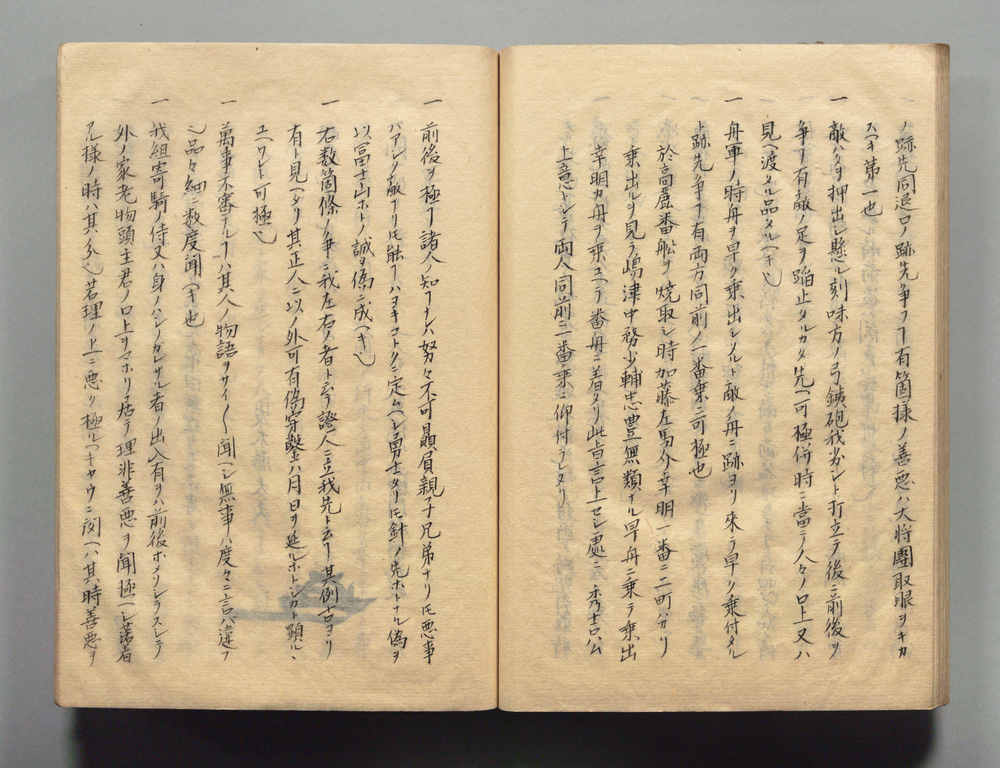 ノ跡先同退口ノ跡先争フ叓有箇様ノ善悪ハ大将團取眼ヲキカ
スヘキ第一也
一 敵ハタヲ押出シ懸ル刻味方ノ弓鉄砲我劣シト打立テ後ニ前後ヲ
争フ叓有敵ノ足ヲ踏止タルカタ先ヘ可極併時ニ當テ人々ノ口上又ハ
見ヘ渡タル品タルヘキ也
一 舟軍ノ時舟ヲ早ク乗出シタルト敵ノ舟ニ跡ヨリ來テ早ク乗付タル
ト跡先争フ叓有両方同前ノ一番乗ニ可極也
於高麗番舩ヲ焼取シ時加藤左馬介幸明一番ニ二町ハカリ
乗出ルヲ見テ嶋津中務少輔忠豊無類ナル早舟ニ乗テ乗出
幸明カ舟ヲ乗コヘテ番舟ニ着タリ此旨言上セシ處ニ秀吉公ノ
上意トシテ両人同前ニ一番乗ニ仰付ラレタリ
一 前後ヲ極ル叓諸人ノ知叓ナレハ努々不可贔屓親子兄弟ナリ𪜈悪事
アラン敵アリ𪜈能叓ハヨキコトクニ定ムヘシ勇士タリ𪜈針ノ先ホトナル偽ヲ
以冨士山ホトノ誠ヲ偽ニ成ヘキ也
一 右数箇條ノ争ニ我左右ノ者ト云テ證人ニ立我先ト云叓其例古ヨリ
有ト見ヘタリ其正人ニ以ノ外可有偽穿鑿ハ月日ヲ延ルホトシカト顕ルヽ
ユヘワレト可極也
一 萬事不審ナル叓ハ其人ノ物語ヲサイ〳〵聞ヘシ無事ハ度々ニ言ハ違フ
也品々細ニ数度聞ヘキ也
一 我組寄騎ノ侍又ハ身ノハシノカレサル者ノ出入有ヲハ前後ホメソシラスシテ
外ノ家老物頭主君ノ口上ヲマホリ居テ理非善悪ヲ聞極ヘシ落着
ノ様ノ時ハ其分也若理ノ上ニ悪ク極ルヘキヤウニ聞ヘハ其時善悪ヲ